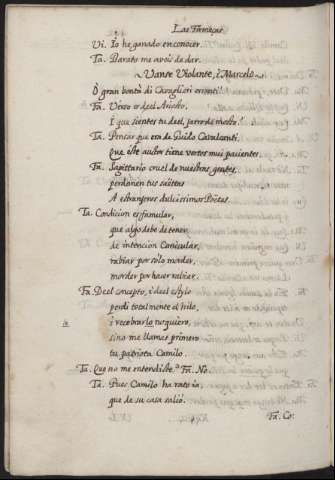 Las Firmezas
Vi. Io ha ganado en conocer.
Ta. Barato me aveis de dar.
Vanse Violante, i Marcelo
O gran bontà di Cavaglieri erranti!
Fa. Verso es de el Ariosto,
I que sientes tu de el, pater de mostro?
Ta. Pensar que era de Guido Cavalcanti.
Que este auctor tiene versos mui pacientes.
Fa. Sagittario cruel de nuestras gentes,
perdonen tus saittas
A estrangeros dulcissimos Poetas.
Ta. Condicion es famular,
que algo debe de tener
de intencion Canicular,
rabiar por solo morder,
morder por hacer rabiar.
Fa. De el concepto, i de el estylo
perdi totalmente el hilo,
i recobrarlo no quiero,
sino me llamas primero
tu patriota Camilo.
Ta. Que no me entendiste? Fa. No.
Ta. Pues Camilo ha rato ia,
que de su casa salio.
Fa. Co: